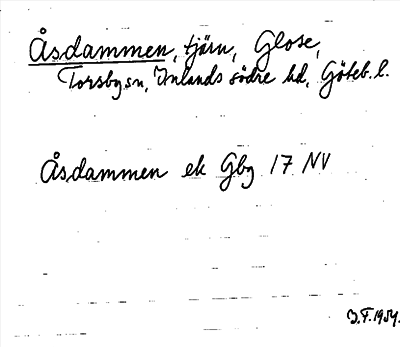 Åsdammen, tjärn, Glose,
Torsby sn, Inlands södre hd, Göteb. l.
Åsdammen ek Gbg 17 NV
J.F. 1954.